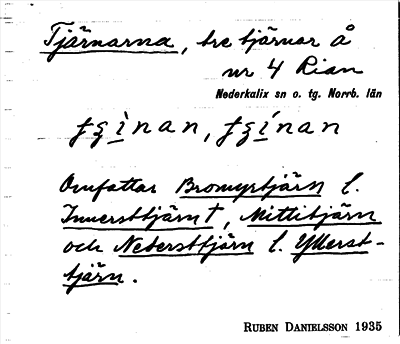 Tjärnarna, tre tjärnar å
nr 4 Rian
Nederkalix sn o. tg. Norrb. län
Omfattar Bromyrtjärn l.
Innersttjärn †, Mittitjärn
och Nedersttjärn l. Ytterst-
tjärn.
RUBEN DANIELSSON 1935